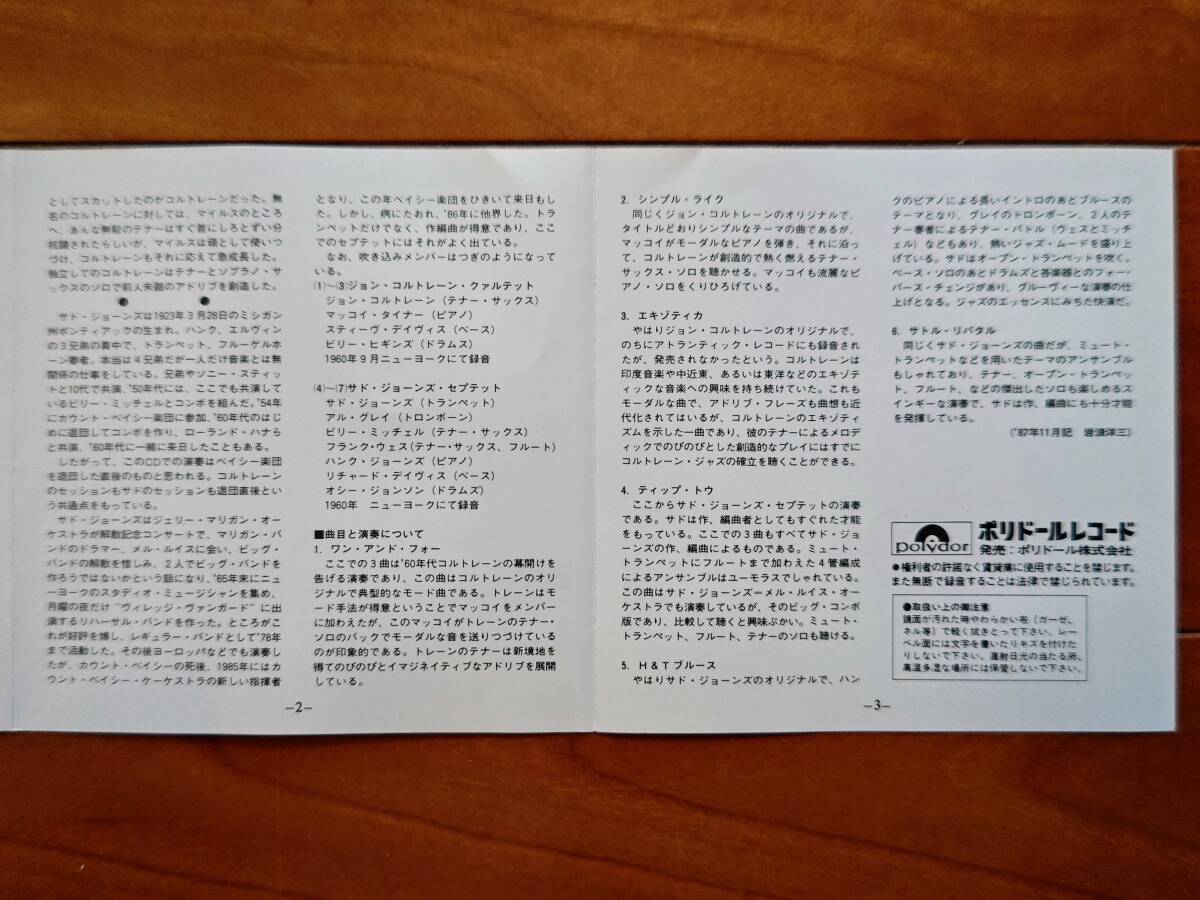 としてスカットしたのがコルトレーンだった。無
名のコルトレーンに対しては、マイルスのところ
へ、あんな無能のテナーはすぐ首にしろとずい分
抗議されたらしいが、マイルスは頑として使いつ
づけ、コルトレーンもそれに応えて急成長した。
独立してのコルトレーンはテナーとソプラノ・サ
ックスのソロで前人未踏のアドリブを創造した。
● ●
サド・ジョーンズは1923年3月28日のミシガン
州ポンティアックの生まれ。ハンク、エルヴィン
の3兄弟の真中で、トランペット、フルーゲルホ
ーン奏者。本当は4兄弟だが一人だけ音楽とは無
関係の仕事をしている。兄弟やソニー・スティッ
トと10代で共演、'50年代には、ここでも共演して
いるビリー・ミッチェルとコンボを組んだ。'54年
にカウント・ベイシー楽団に参加、'60年代のはじ
めに退団してコンボを作り、ローランド・ハナら
と共演、'60年代に一緒に来日したこともある。
したがって、このCDでの演奏はベイシー楽団
を退団した直後のものと思われる。コルトレーン
のセッションもサドのセッションも退団直後とい
う共通点をもっている。
サド・ジョーンズはジェリー・マリガン・オー
ケストラが解散記念コンサートで、マリガン・バ
ンドのドラマー、メル・ルイスに会い、ビッグ・
バンドの解散を惜しみ、2人でビッグ・バンドを
作ろうではないかという話になり、'65年末にニュ
ーヨークのスタディオ・ミュージシャンを集め、
月曜の夜だけ"ヴィレッジ・ヴァンガード"に出
演するリハーサル・バンドを作った。ところがこ
れが好評を博し、レギュラー・バンドとして'78年
まで活動した。その後ヨーロッパなどでも演奏し
たが、カウント・ベイシーの死後、1985年にはカ
ウント・ベイシー・ケーケストラの新しい指揮者
−2−
となり、この年ベイシー楽団をひきいて来日もし
た。しかし、病にたおれ、'86年に他界した。トラ
ンペットだけでなく、作編曲が得意であり、ここ
でのセプテットにはそれがよく出ている。
なお、吹き込みメンバーはつぎのようになって
いる。
(1)〜(3)ジョン・コルトレーン・クァルテット
ジョン・コルトレーン(テナー・サックス)
マッコイ・タイナー(ピアノ)
スティーヴ・デイヴィス(ベース)
ビリー・ヒギンズ(ドラムス)
1960年9月ニューヨークにて録音
(4)〜(7)サド・ジョーンズ・セプテット
サド・ジョーンズ(トランペット)
アル・グレイ(トロンボーン)
ビリー・ミッチェル(テナー・サックス)
フランク・ウェス(テナー・サックス、フルート)
ハンク・ジョーンズ(ピアノ)
リチャード・デイヴィス(ベース)
オシー・ジョンソン(ドラムズ)
1960年 ニューヨークにて録音
■曲目と演奏について
1. ワン・アンド・フォー
ここでの3曲は'60年代コルトレーンの幕開けを
告げる演奏であり、この曲はコルトレーンのオリ
ジナルで典型的なモード曲である。トレーンはモ
ード手法が得意ということでマッコイをメンバー
に加わえたが、このマッコイがトレーンのテナー・
ソロのバックでモーダルな音を送りつづけている
のが印象的である。トレーンのテナーは新境地を
得てのびのびとイマジネイティブなアドリブを展開
している。
2. シンプル・ライク
同じくジョン・コルトレーンのオリジナルで、
タイトルどおりシンプルなテーマの曲であるが、
マッコイがモーダルなピアノを弾き、それに沿っ
て、コルトレーンが創造的で熱く燃えるテナー・
サックス・ソロを聴かせる。マッコイも流麗なピ
アノ・ソロをくりひろげている。
3. エキゾティカ
やはりジョン・コルトレーンのオリジナルで、
のちにアトランティック・レコードにも録音され
たが、発売されなかったという。コルトレーンは
印度音楽や中近東、あるいは東洋などのエキゾテ
ィックな音楽への興味を持ち続けていた。これも
モーダルな曲で、アドリブ・フレーズも曲想も近
代化されてはいるが、コルトレーンのエキゾティ
ズムを示した一曲であり、彼のテナーによるメロデ
ィックでのびのびとした創造的なプレイにはすでに
コルトレーン・ジャズの確立を聴くことができる。
4. ティップ・トウ
ここからサド・ジョーンズ・セプテットの演奏
である。サドは作、編曲者としてもすぐれた才能
をもっている。ここでの3曲もすべてサド・ジョ
ーンズの作、編曲によるものである。ミュート・
トランペットにフルートまで加わえた4管編成
によるアンサンブルはユーモラスでしゃれている。
この曲はサド・ジョーンズ−メル・ルイス・オー
ケストラでも演奏しているが、そのビッグ・コンボ
版であり、比較して聴くと興味ぶかい。ミュート・
トランペット、フルート、テナーのソロも聴ける。
5. H&Tブルース
やはりサド・ジョーンズのオリジナルで、ハン
−3−
クのピアノによる長いイントロのあとブルースの
テーマとなり、グレイのトロンボーン、2人のテ
ナー奏者によるテナー・バトル(ヴェスとミッチ
ェル)などもあり、熱いジャズ・ムードを盛り上
げている。サドはオープン・トランペットを吹く。
ベース・ソロのあとドラムズと各楽器とのフォー・
バース・チェンジがあり、グルーヴィーな演奏の仕
上げとなる。ジャズのエッセンスにみちた快演だ。
6. サトル・リバタル
同じくサド・ジョーンズの曲だが、ミュート・
トランペットなどを用いたテーマのアンサンブル
もしゃれており、テナー、オープン・トランペッ
ト、フルート、などの傑出したソロも楽しめるス
インギーな演奏で、サドは作、編曲にも十分才能
を発揮している。
('87年11月記 岩浪洋三)
polydor
ポリドールレコード
発売:ポリドール株式会社
●権利者の許諾なく賃貸業に使用することを禁じます。
また無断で録音することは法律で禁じられています。
●取扱い上の御注意
鏡面が汚れた時やわらかい布(ガーゼ、
ネル等)で軽く拭きとって下さい。レー
ベル面には文字を書いたりキズを付けた
りしないで下さい。直射日光の当たる所、
高温多湿な場所には保管しないで下さい。